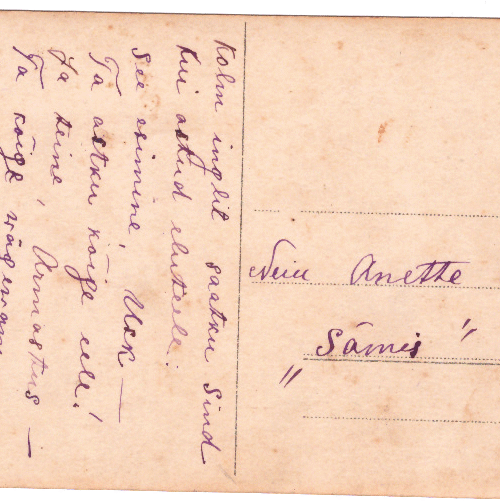 Kolm inglit saatku Sind
Kui astud eluteele:
See esimine, Usk —
Ta astku kõige eel!
Ja teine, Armastus —
Ta kõige vägevam
Neiu Anette
"Sämis"